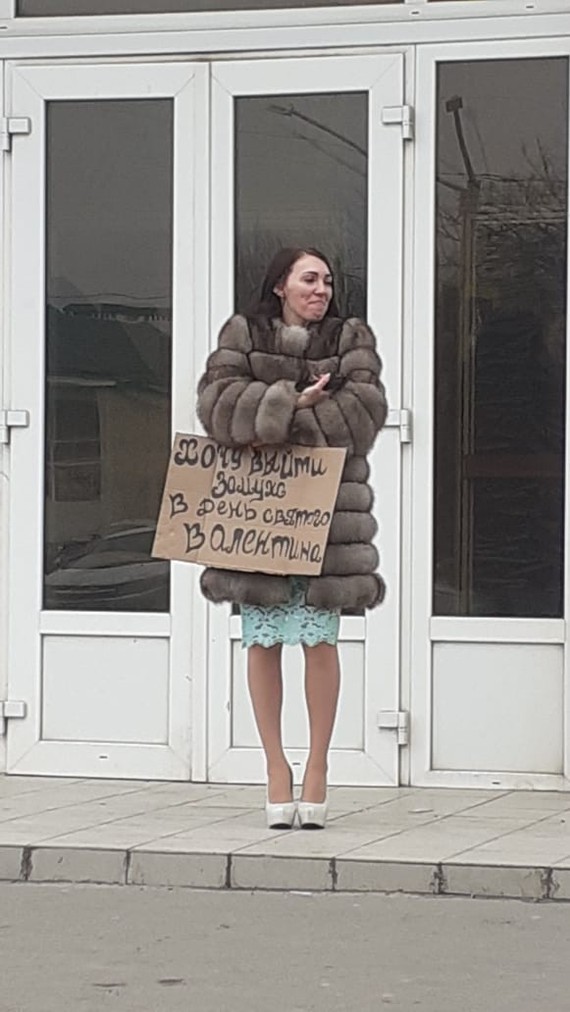 Хочу выйти
Замуж
В День святого
Валентина